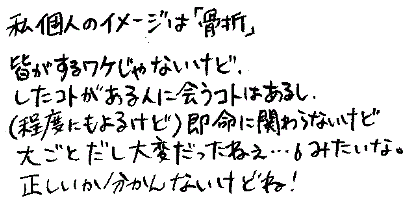 私個人のイメージは「骨折」
皆がするワケじゃないけど、
したコトがある人に会うコトはあるし、
(程度にもよるけど)即命に関わらないけど
大ごとだし大変だったねぇ…みたいな。
正しいか分かんないけどね!